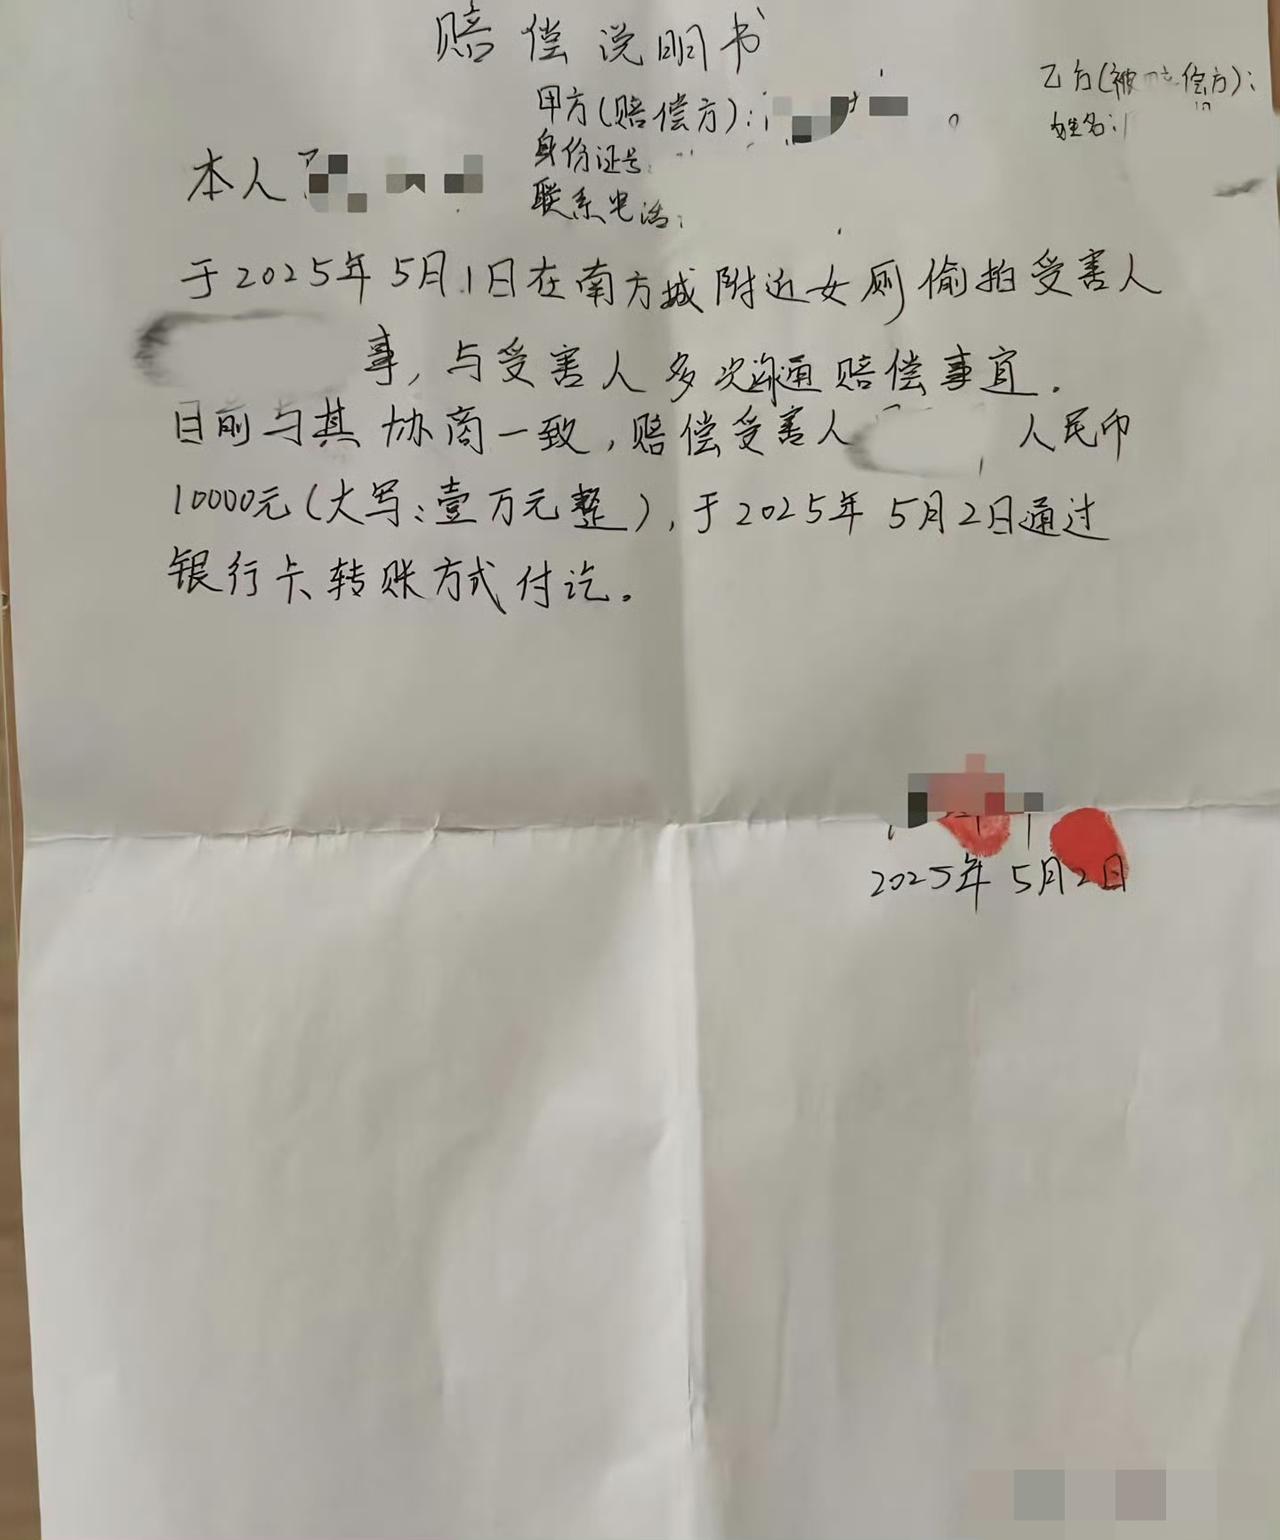 赔偿说明书
甲方(赔偿方):
身份证号:
联系电话:
乙方(被赔偿方):
姓名:
本人
于2025年5月1日在南方城附近女厕偷拍受害人
事,与受害人多次沟通赔偿事宜.
目前与其协商一致,赔偿受害人 人民币
10000元(大写:壹万元整),于2025年5月2日通过
银行卡转账方式付讫。
2025年5月2日